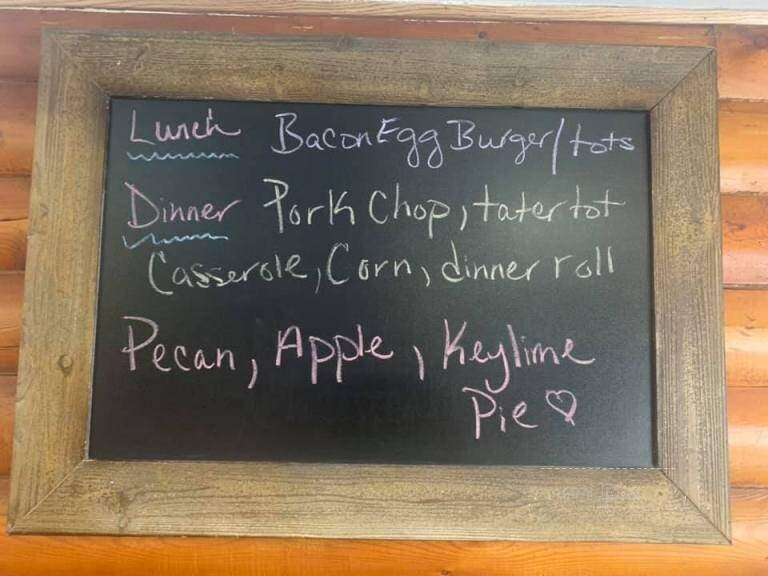 Lunch Bacon Egg Burger/tots
Dinner Pork Chop, tater tot
Casserole, Corn, dinner roll
Pecan, Apple, Keylime
Pie ♡